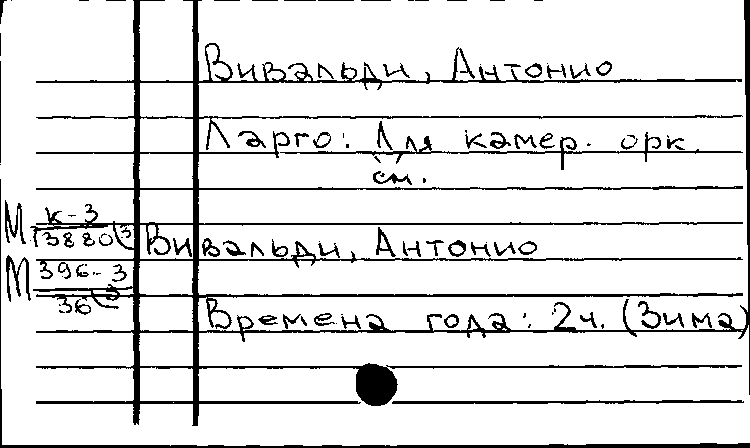 Вивальди, Антонио
Ларго: Для камер. орк.
см.
М к-3
13880(3 Вивальди, Антонио
М 396-3
36(3
Времена года: 2ч. (Зима)